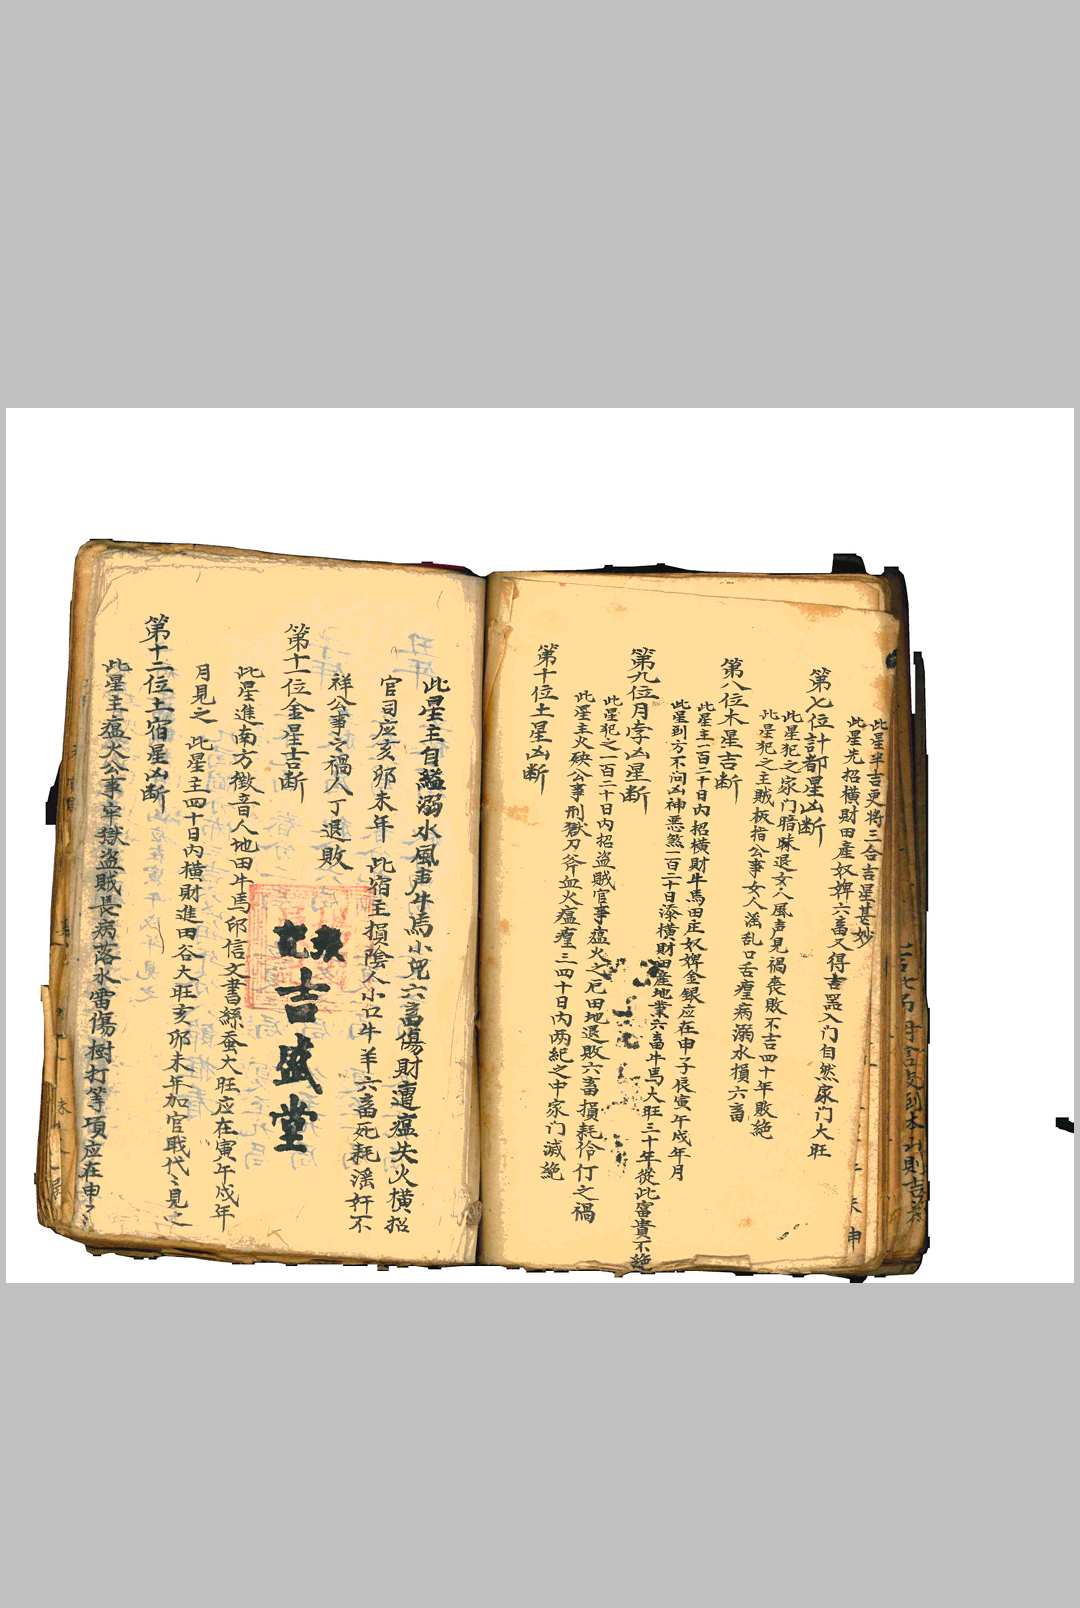 此星半吉更将三合吉星甚妙
此星先招横財田產奴婢六畜又得吉器入门自然家门大旺
第七位計都星凶断
此星犯之家门暗昧退女人風声見禍喪敗不吉四十年敗絶
此星犯之主賊扳指公事女人滛乱口舌瘟病溺水損六畜
第八位木星吉断
此星主一百二十日内招横財牛馬田庄奴婢金銀应在申子辰寅午戍年月
此星到方不问凶神惡煞一百二十日添横財田產地業六畜牛馬大旺三十年後此富貴不絶
第九位月孛凶星断
此星犯之一百二十日内招盗賊官事瘟火之厄田地退敗六畜損耗伶仃之禍
此星主火殃公事刑獄刀斧血火瘟瘽三四十日内两紀之中家门滅絶
第十位土星凶断
此星主自縊溺水風声牛馬小児六畜傷財遭瘟失火横招
官司应亥卯未年 此宿主損陰人小口牛羊六畜死耗滛奸不
祥公事之禍人丁退敗
第十一位金星吉断
吉盛堂
此星進南方徵音人地田牛馬印信文書絲蚕大旺应在寅午戍年
月見之 此星主四十日内横財進田谷大旺亥卯未年加官戝代々見之
第十二位土宿星凶断
此星主瘟火公事牢獄盗賊長病落水雷傷樹打等項应在申